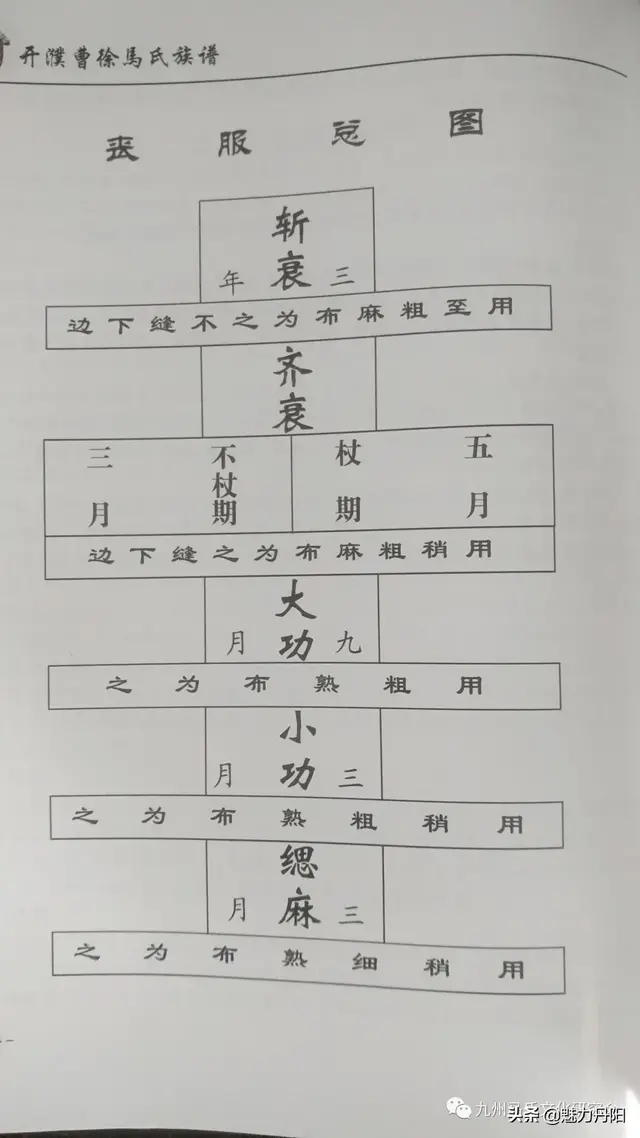 开濮曹徐马氏族谱
丧服总图
斩衰
三年
用至粗麻布为之不缝下边
齐衰
五月
杖期
不杖期
三月
用稍粗麻布为之缝下边
大功
九月
用粗熟布为之
小功
三月
用稍粗熟布为之
缌麻
三月
用稍细熟布为之
九州氏文化研究
头条 @魅力丹阳